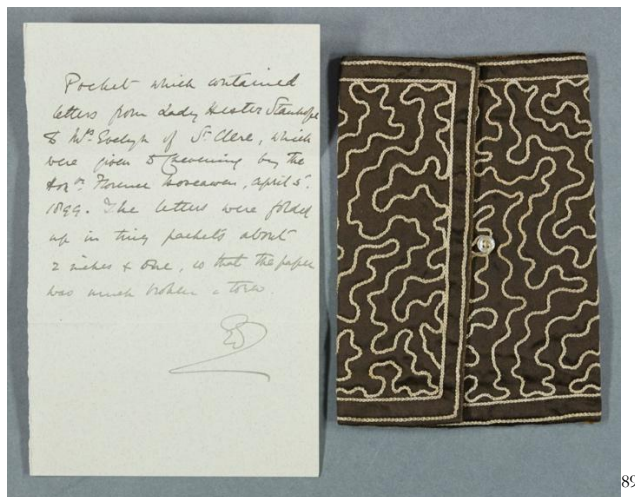 Pocket which contained
letters from Lady Hester Stanhope
& Mrs. Evelyn of St. Clere, which
were given to Chevening by the
Honble. Florence Boscawen, April 5.
1899. The letters were folded
up in tiny packets about
2 inches & one, so that the paper
was much broken & torn.
89